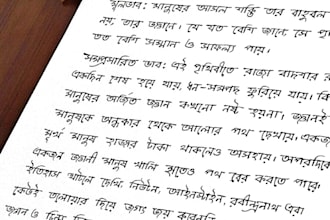 মূলভাব: মানুষের আসল শক্তি তার বাহুবল
নয়, তার জ্ঞানে। যে যত বেশি জানে, সে
তত বেশি সম্মান ও সাফল্য পায়।
সম্প্রসারিত ভাব: এই পৃথিবীতে রাজা বাদশার
একদিন শেষ হয়ে যায়, ধন-সম্পদ ফুরিয়ে যায়। কি
মানুষের অর্জিত জ্ঞান কখনো নষ্ট হয়না। জ্ঞানই
মানুষকে অন্ধকার থেকে আলোর পথ দেখায়। একজন
মূর্খ মানুষ হাজার টাকা থাকলেও অসহায়। অপরদিকে
একজন জ্ঞানী মানুষ খালি হাতেও পথ বের করতে পারে।
ইতিহাস ঘাটলে দেখি, নিউটন, আইনস্টাইন, রবীন্দ্রনাথ এরা
কেউই তলোয়ার দিয়ে জগৎ জয় করেননি
জ্ঞান ও চিন্তা দিয়ে